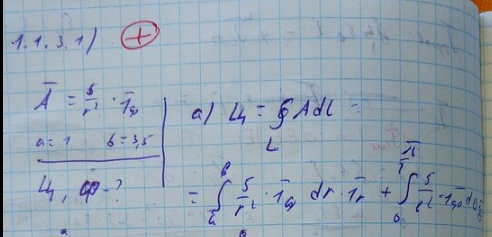 1.1.3.1) +
Ā = 5/r² · 1̄φ
a = 1 b = 3,5
Ц, φ - ?
а) Ц = ∮_L Ādl =
= ∫_a^b 5/r² · 1̄φ dr · 1̄r + ∫_0 5/r² · 1̄φ